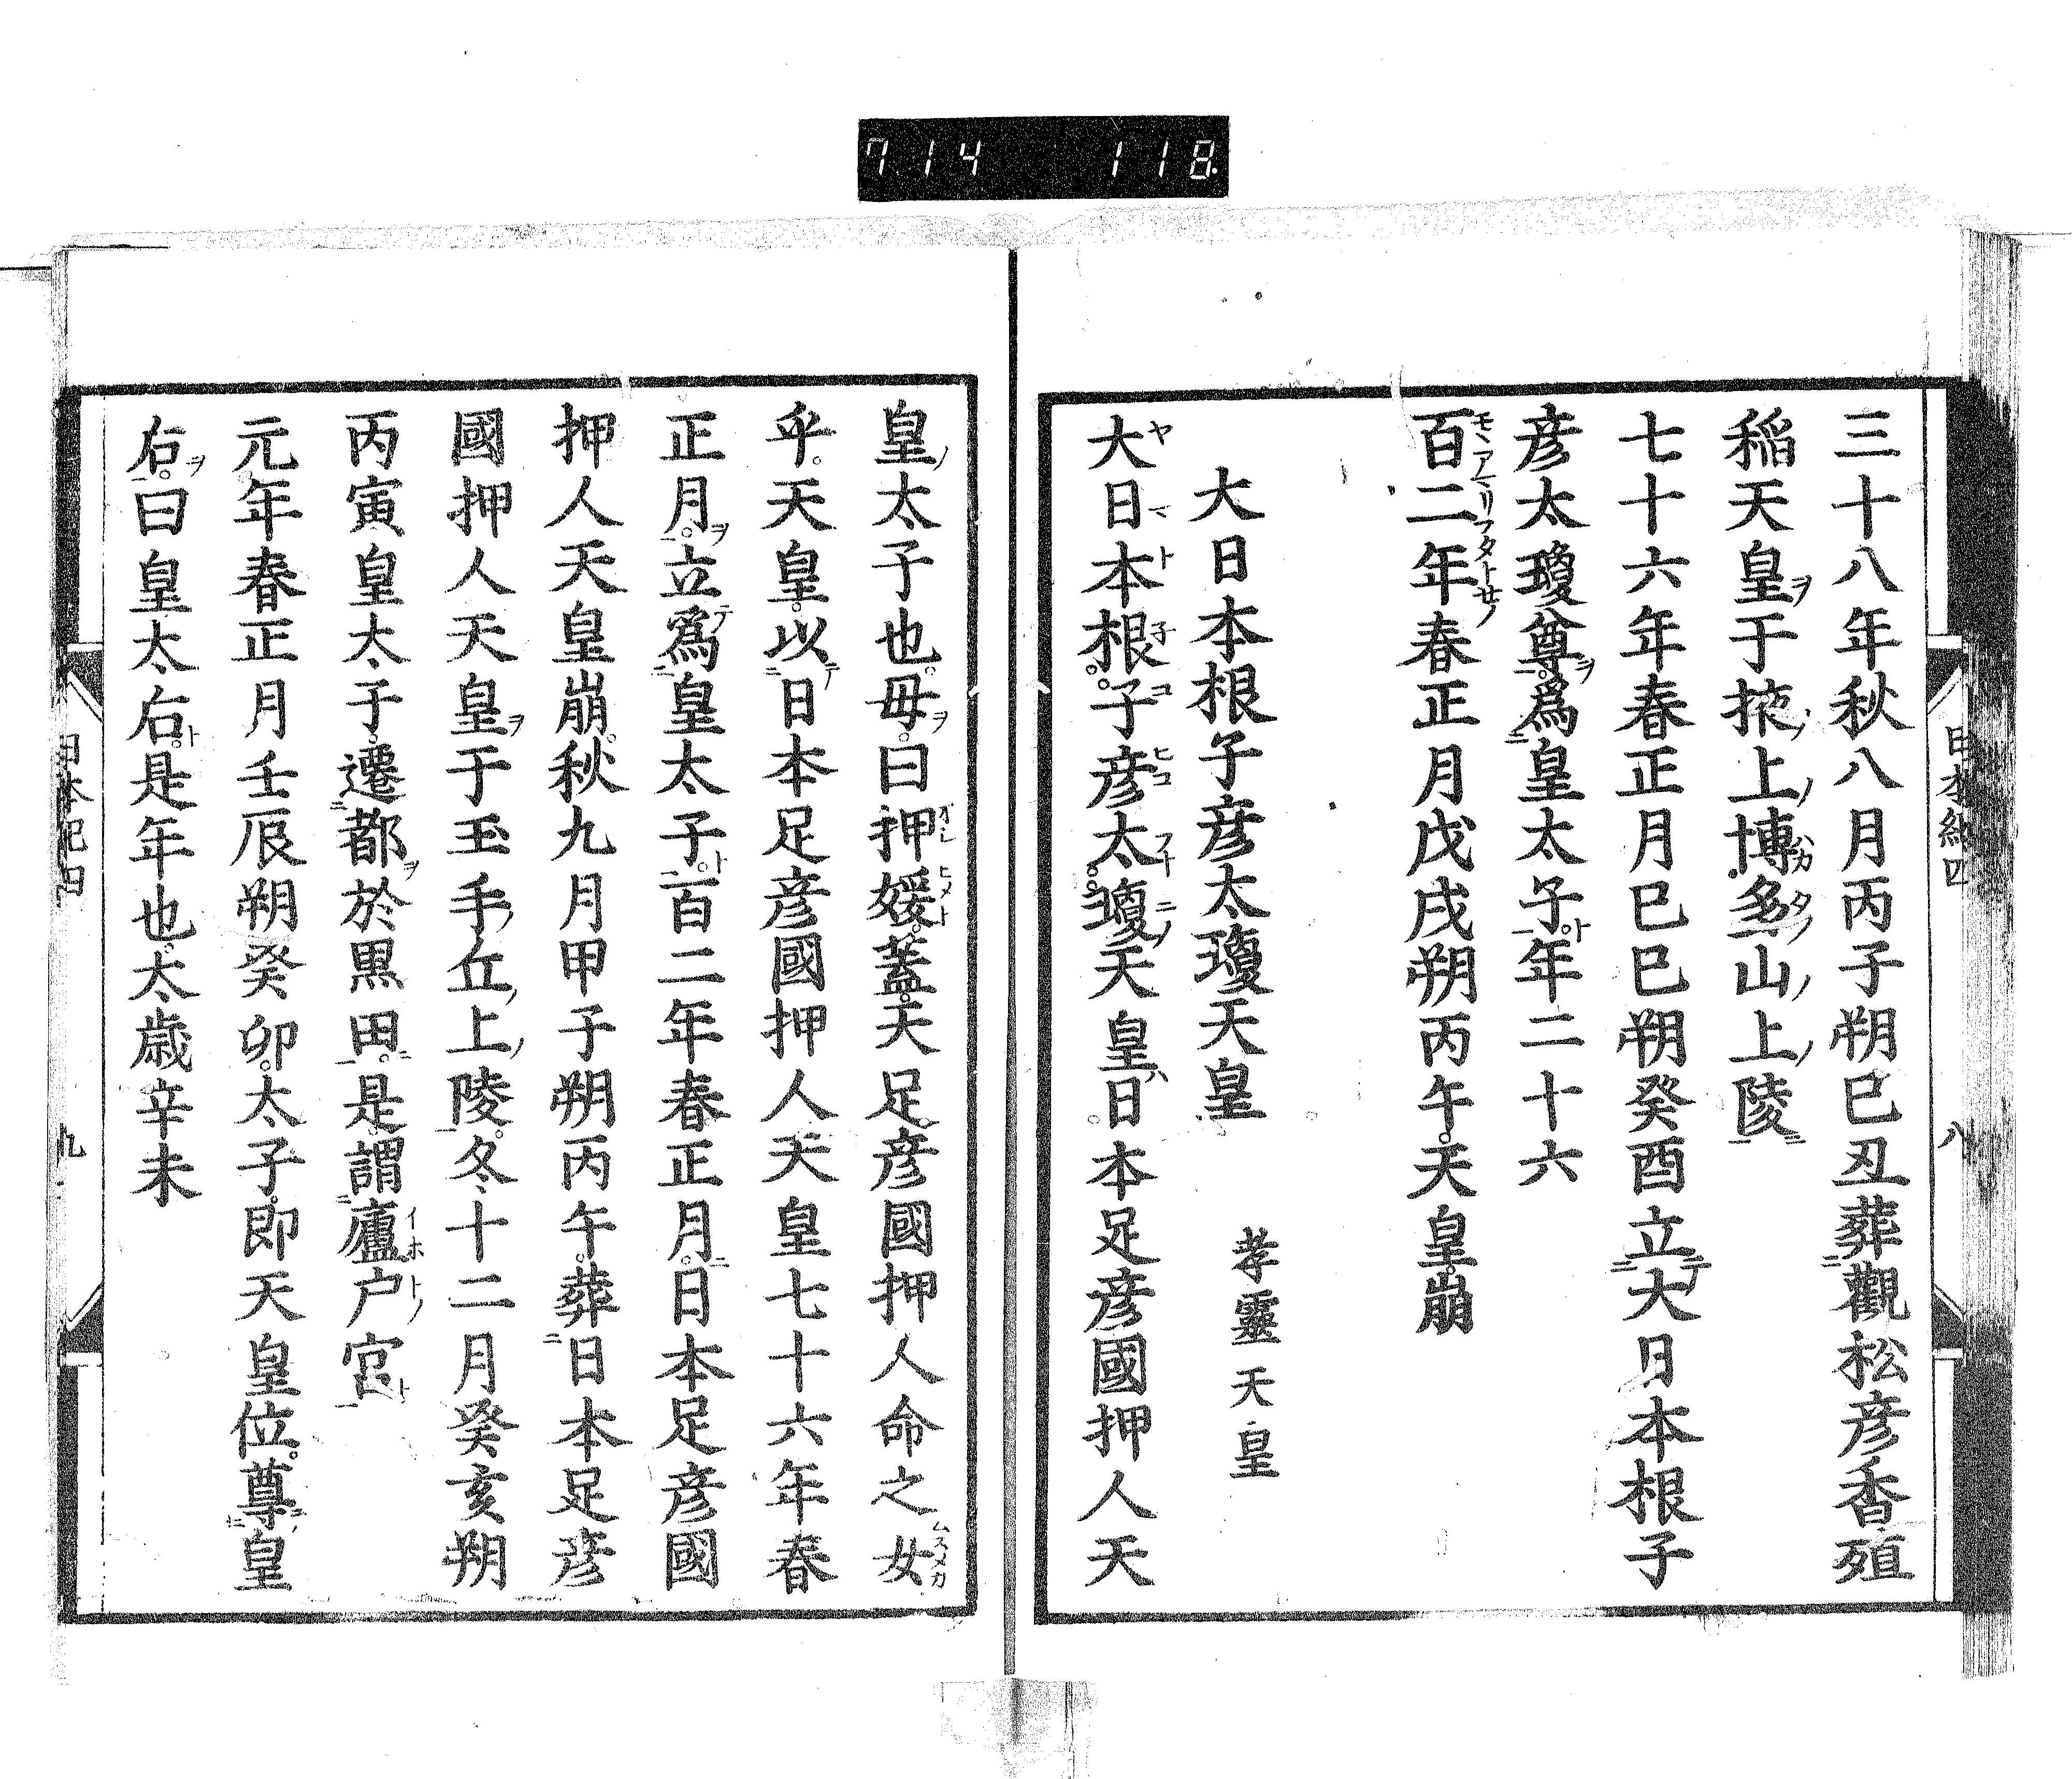 714 118
三十八年秋八月丙子朔己丑葬觀松彦香殖
稲天皇于掖上博多山上陵
七十六年春正月己巳朔癸酉立大日本根子
彦太瓊尊爲皇太子年二十六
百二年春正月戊戌朔丙午天皇崩
大日本根子彦太瓊天皇 孝靈天皇
大日本根子彦太瓊天皇日本足彦國押人天
皇太子也母曰押媛蓋天足彦國押人命之女
乎天皇以日本足彦國押人天皇七十六年春
正月立爲皇太子百二年春正月日本足彦國
押人天皇崩秋九月甲子朔丙午葬日本足彦
國押人天皇于玉手丘上陵冬十二月癸亥朔
丙寅皇太子遷都於黒田是謂廬戸宮
元年春正月壬辰朔癸卯太子即天皇位尊皇
右曰皇太右是年也太歳辛未
八
九